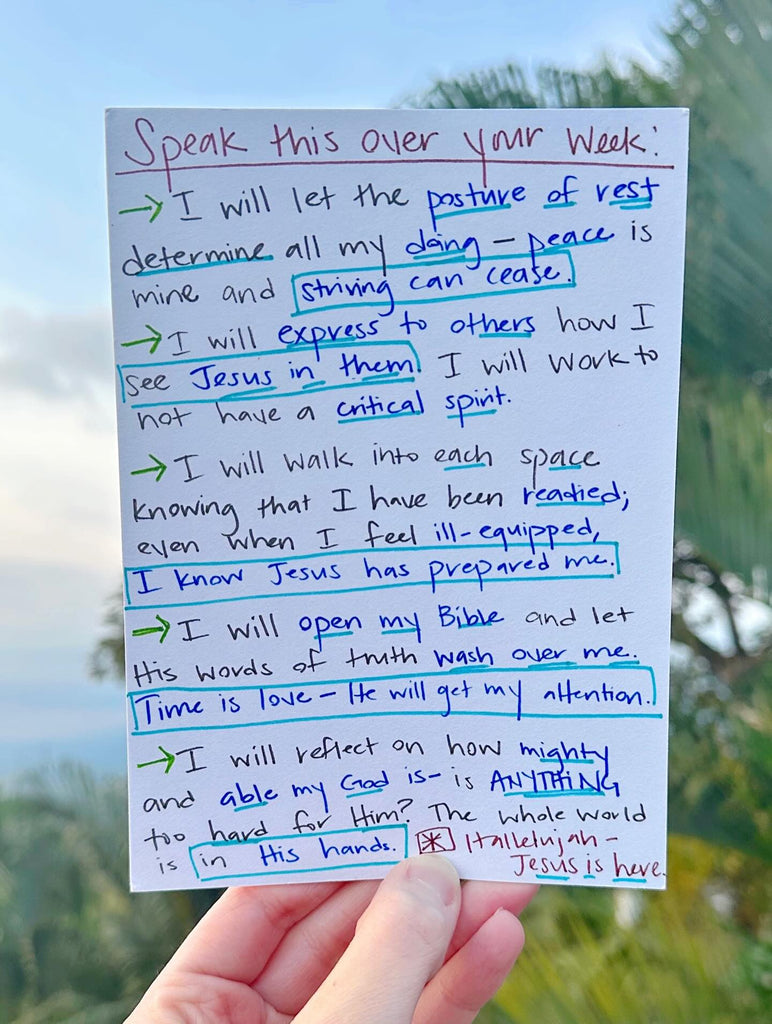 Speak this over your week:
→ I will let the posture of rest
determine all my doing – peace is
mine and striving can cease.
→ I will express to others how I
see Jesus in them. I will work to
not have a critical spirit.
→ I will walk into each space
knowing that I have been readied;
even when I feel ill-equipped,
I know Jesus has prepared me.
→ I will open my Bible and let
His words of truth wash over me.
Time is love – He will get my attention.
→ I will reflect on how mighty
and able my God is – is ANYTHING
too hard for Him? The whole world
is in His hands. * Hallelujah –
Jesus is here.